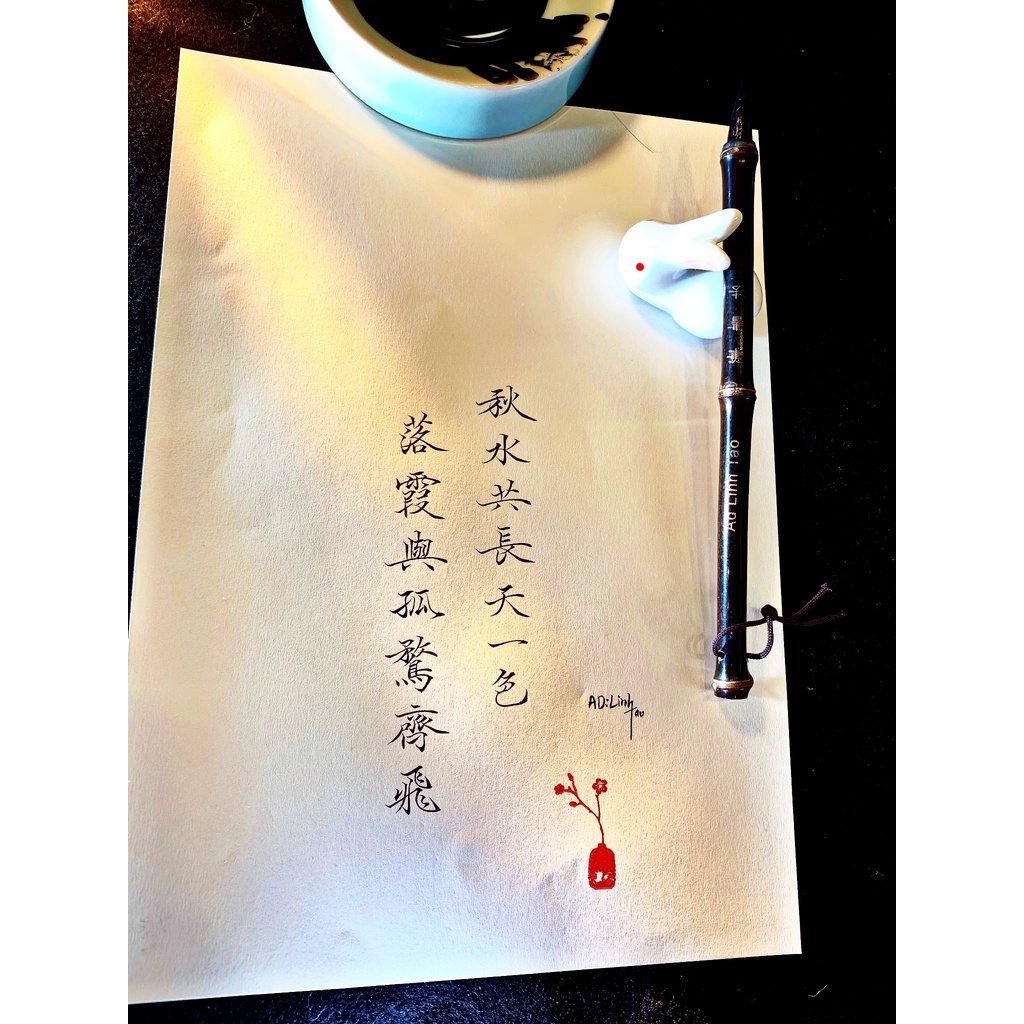 秋水共長天一色
落霞與孤鶩齊飛
AD:Linh
Tao
Ad Linh Tao